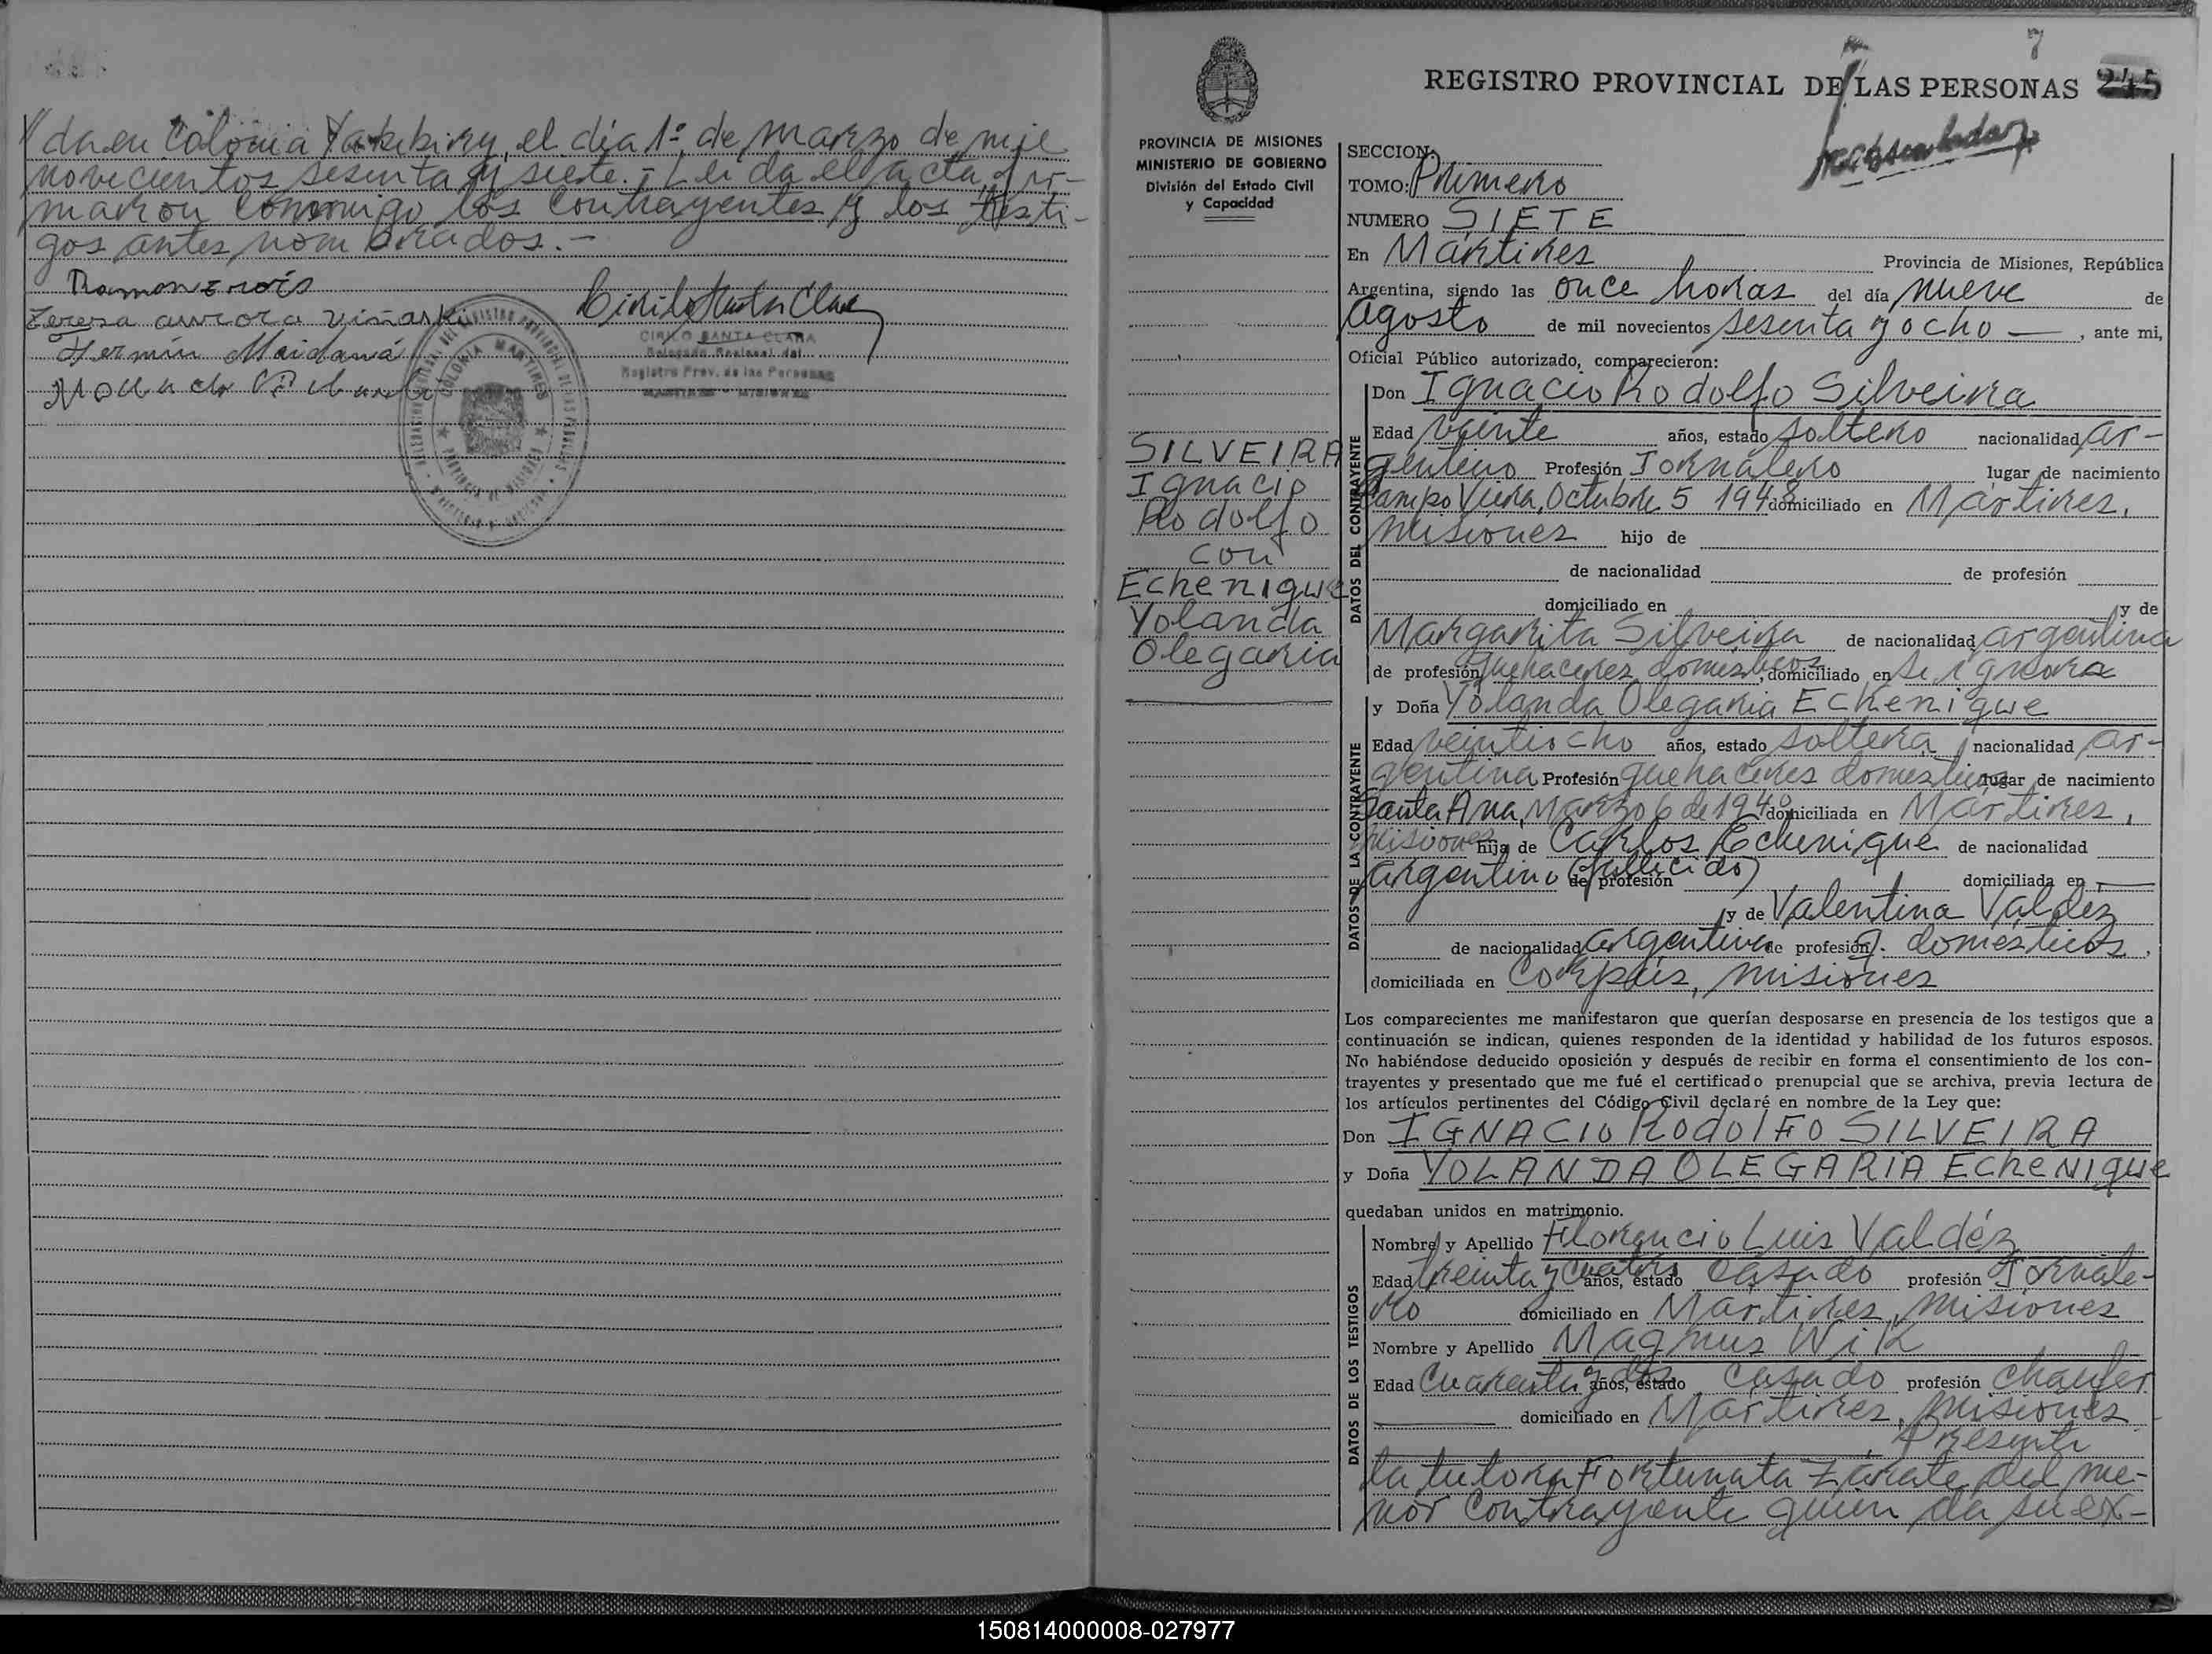 da en Colonia Yabebiry, el día 1º de marzo de mil
novecientos sesenta y siete.- Leida el acta fir-
maron conmigo los contrayentes y los testi-
gos antes nombrados.-
Teresa aurora
Fermín Maidaná
CIRILO SANTA CLARA
Delegado Regional del
Registro Prov. de las Personas
MARTIRES - MISIONES
COLONIA MARTIRES
PROVINCIA DE MISIONES
7
REGISTRO PROVINCIAL DE LAS PERSONAS 245
PROVINCIA DE MISIONES
MINISTERIO DE GOBIERNO
División del Estado Civil
y Capacidad
SILVEIRA
Ignacio
Rodolfo
con
Echenique
Yolanda
Olegaria
SECCION:
TOMO: Primero
NUMERO SIETE
En Mártires Provincia de Misiones, República
Argentina, siendo las once horas del día nueve de
Agosto de mil novecientos sesenta y ocho —, ante mi,
Oficial Público autorizado, comparecieron:
DATOS DEL CONTRAYENTE
Don Ignacio Rodolfo Silveira
Edad veinte años, estado soltero nacionalidad ar-
gentino Profesión Jornalero lugar de nacimiento
Campo Viera, Octubre 5 1948 domiciliado en Martires,
Misiones hijo de
de nacionalidad de profesión
domiciliado en y de
Margarita Silveira de nacionalidad argentina
de profesión quehaceres domesticos, domiciliado en se ignora
DATOS DE LA CONTRAYENTE
y Doña Yolanda Olegaria Echenique
Edad veintiocho años, estado soltera nacionalidad ar-
gentina Profesión quehaceres domesticos lugar de nacimiento
Santa Ana, Marzo 6 de 1940 domiciliada en Martires,
Misiones hija de Carlos Echenique de nacionalidad
argentino (fallecido) de profesión domiciliada en —
y de Valentina Valdez
de nacionalidad argentina de profesión q. domesticos,
domiciliada en Corpus, Misiones
Los comparecientes me manifestaron que querían desposarse en presencia de los testigos que a
continuación se indican, quienes responden de la identidad y habilidad de los futuros esposos.
No habiéndose deducido oposición y después de recibir en forma el consentimiento de los con-
trayentes y presentado que me fué el certificado prenupcial que se archiva, previa lectura de
los artículos pertinentes del Código Civil declaré en nombre de la Ley que:
Don IGNACIO RODOLFO SILVEIRA
y Doña YOLANDA OLEGARIA EcheNique
quedaban unidos en matrimonio.
DATOS DE LOS TESTIGOS
Nombre y Apellido Florencio Luis Valdéz
Edad treinta y cuatro años, estado casado profesión Jornale-
ro domiciliado en Martires, Misiones
Nombre y Apellido Magnus Wik
Edad Cuarenta y dos años, estado casado profesión chaufer
domiciliado en Martires, Misiones
Presente
la tutora Fortunata Zárate del me-
nor contrayente quien da su ex-
150814000008-027977